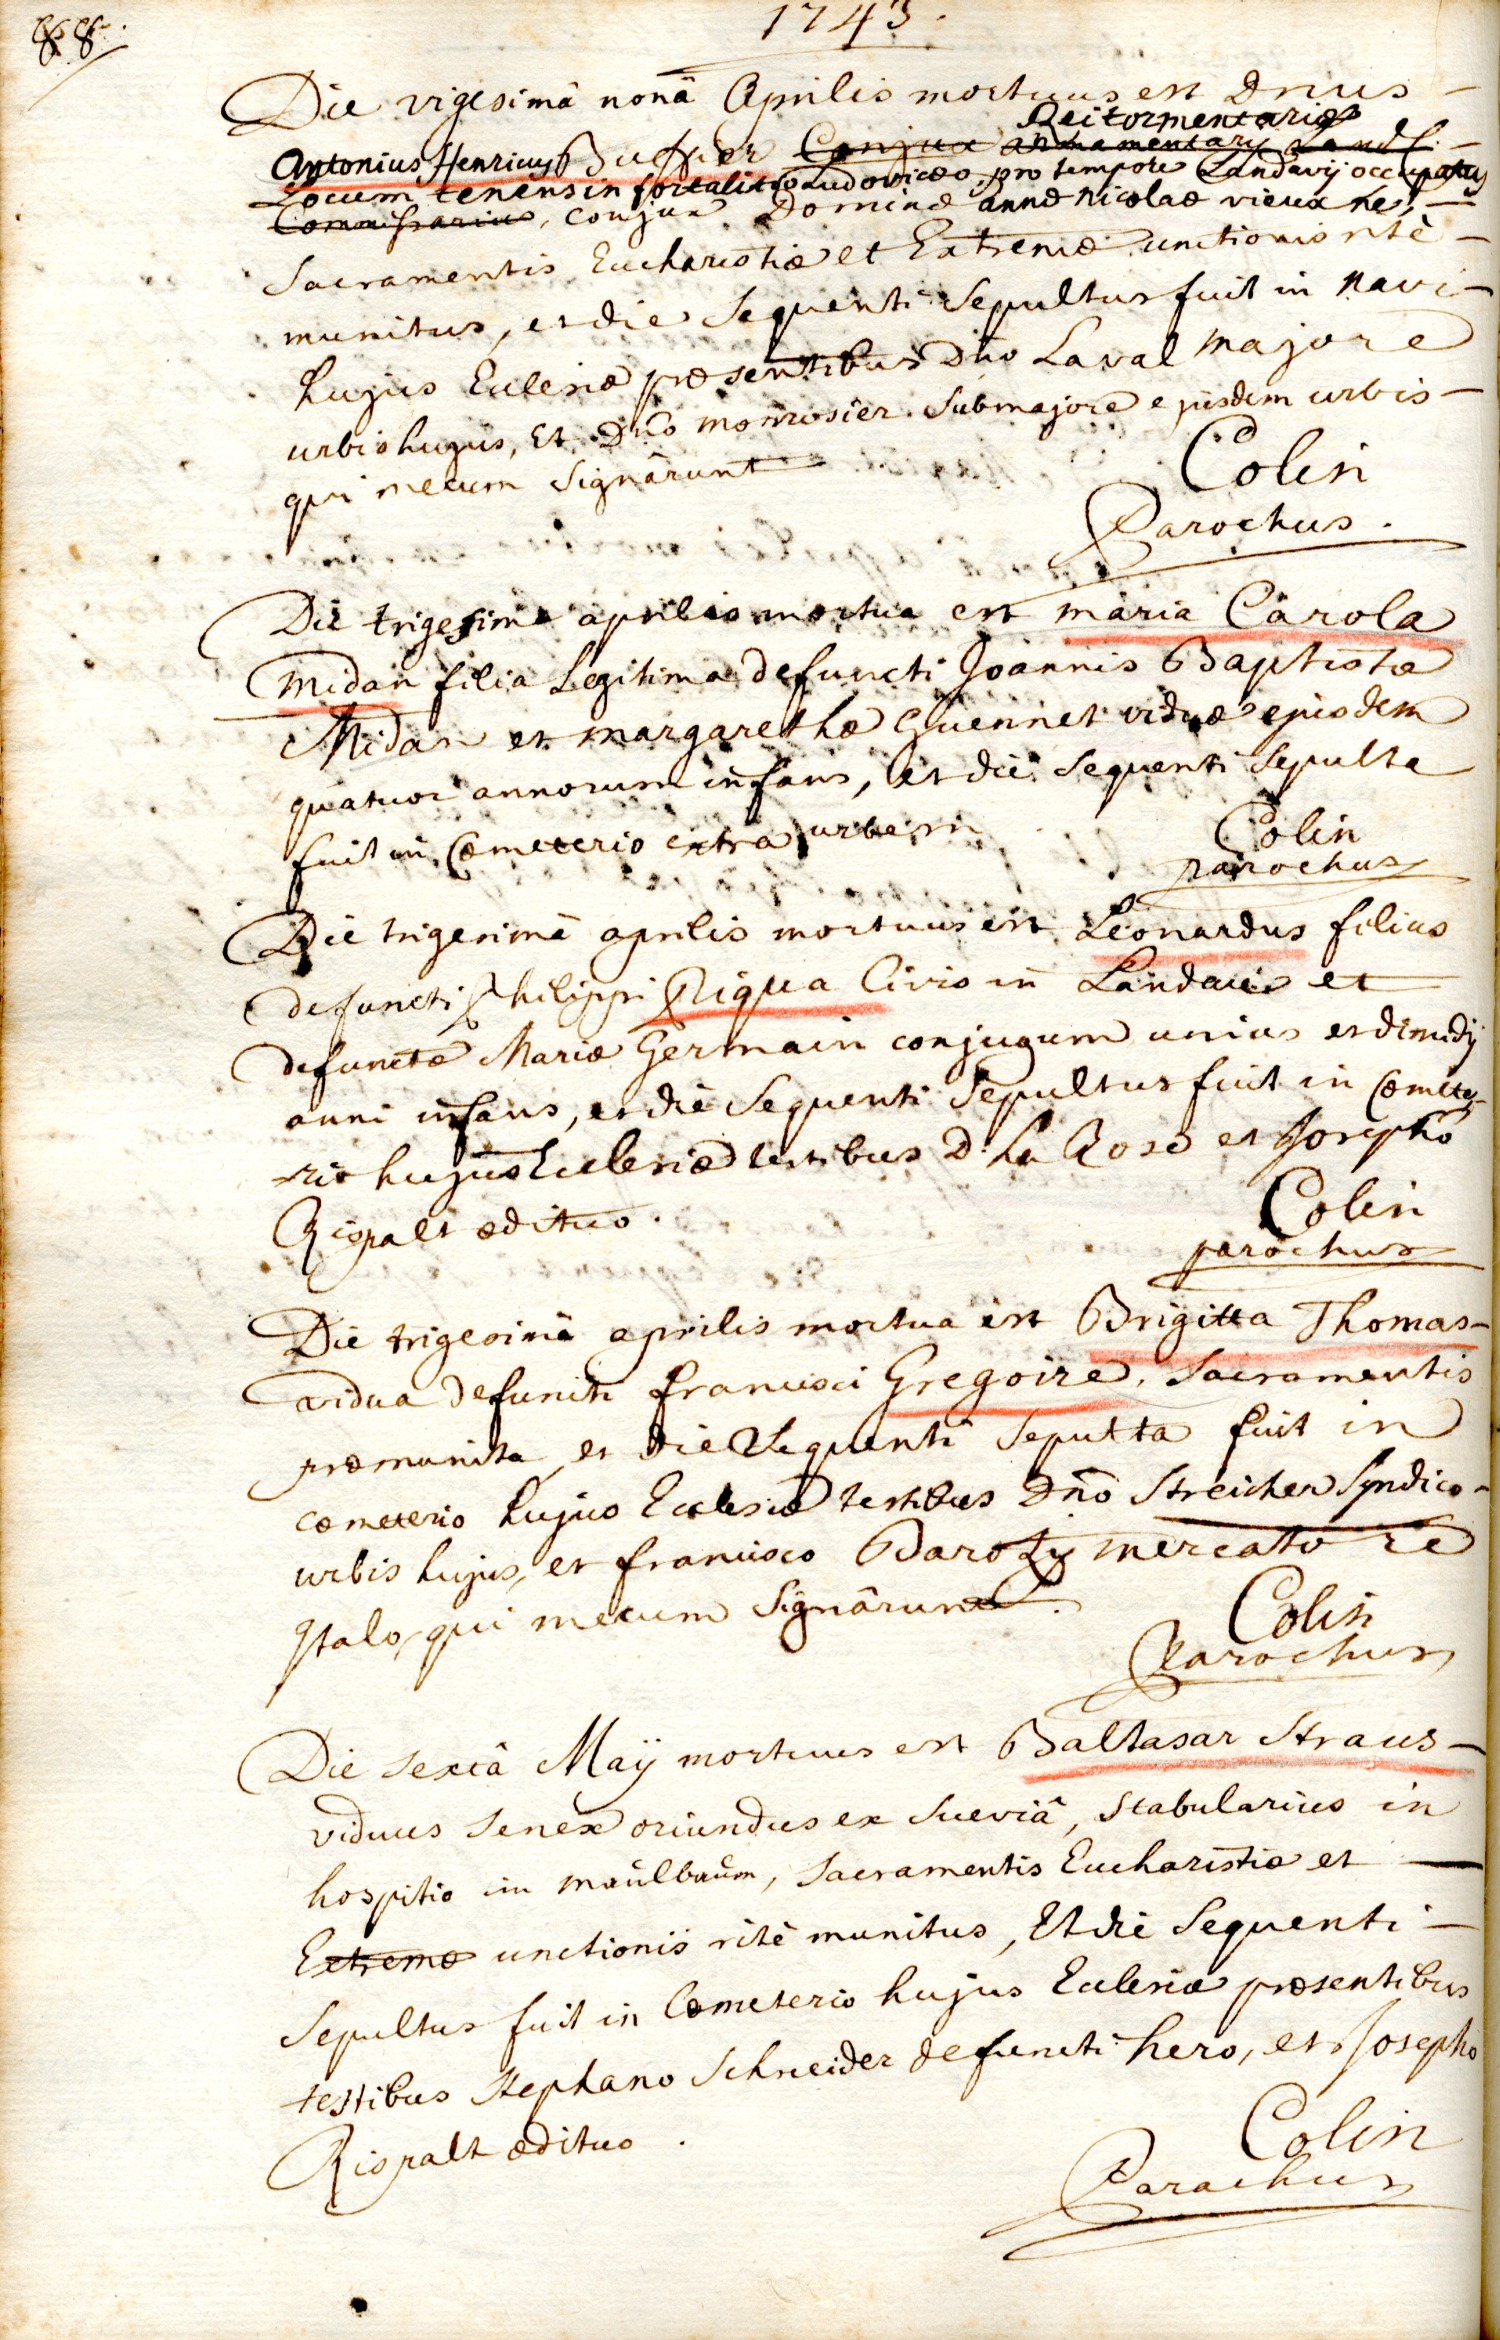 88.
1743.
Die vigesimâ nonâ Aprilis mortuus est Dnus
Rei tormentariae
Antonius Henricus Buffier Conjux armamentarij Land.
Locum tenens in fortalitio Ludovicaeo, pro tempore Landavij occupatus
Commissarius, conjux Dominae Annae Nicolae vieux ne,
Sacramentis Eucharistiae et Extremae unctionis ritè
munitus, et die sequenti sepultus fuit in navi
hujus Ecclesiae praesentibus Dno Laval majore
urbis hujus, Et Dno momrosier submajore ejusdem urbis
qui mecum signârunt
Colin
Parochus.
Die trigesima aprilis mortua est maria Carola
Midan filia Legitima defuncti Joannis Baptistae
Midan et margarethae Guennet viduae ejusdem
quatuor annorum infans, et die sequenti sepulta
fuit in Coemeterio extra urbem
Colin
parochus
Die trigesimâ aprilis mortuus est Leonardus filius
defuncti Philippi Riqua Civis in Landau et
defunctae Mariae Germain conjugum unius et dimidij
anni infans, et die sequenti sepultus fuit in Coemete-
rio hujus Ecclesiae testibus D. La Rose et Josepho
Rispalt aedituo.
Colin
parochus
Die trigesimâ aprilis mortua est Brigitta Thomas
vidua defuncti francisci Gregoire, Sacramentis
praemunita, et die sequenti sepulta fuit in
coemeterio hujus Ecclesiae testibus Dno Streicher Syndico
urbis hujus, et francisco Baroty mercatore
Italo, qui mecum signârunt.
Colin
Parochus
Die sextâ Maij mortuus est Baltasar Straus
viduus senex oriundus ex Sueviâ, stabularius in
hospitio im maulbaum, sacramentis Eucharistiae et
Extremae unctionis ritè munitus, Et die sequenti
sepultus fuit in Coemeterio hujus Ecclesiae praesentibus
testibus Stephano Schneider defuncti hero, et Josepho
Rispalt aedituo.
Colin
Parochus